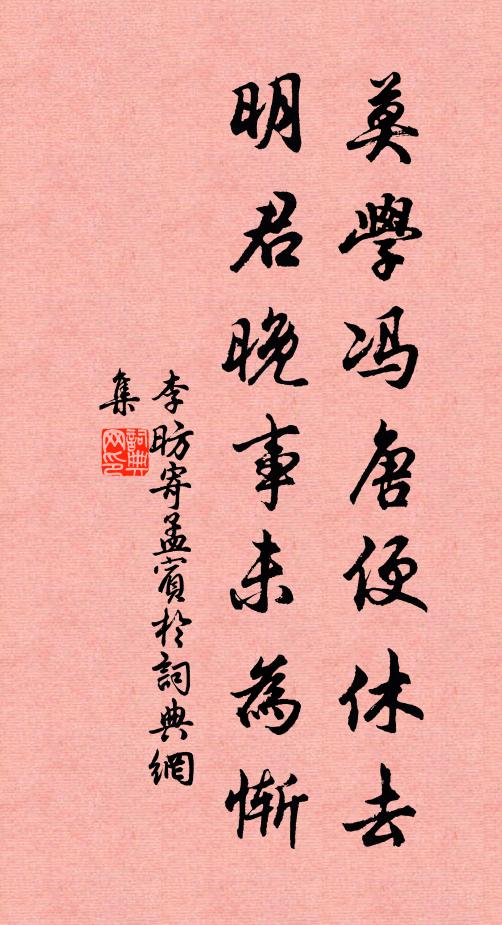 莫學冯唐便休去
明君晚事未為慚
李昉寄孟賓於詞典網
集
詞典
网印